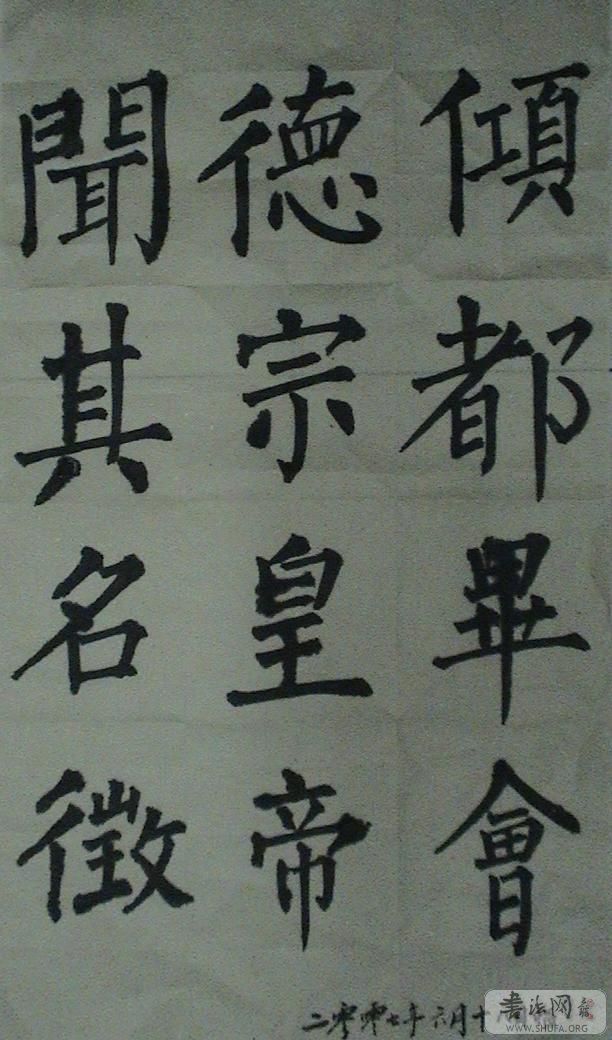 傾都畢會
德宗皇帝
聞其名徵
二零零七年六月十
书法网
WWW.SHUFA.ORG